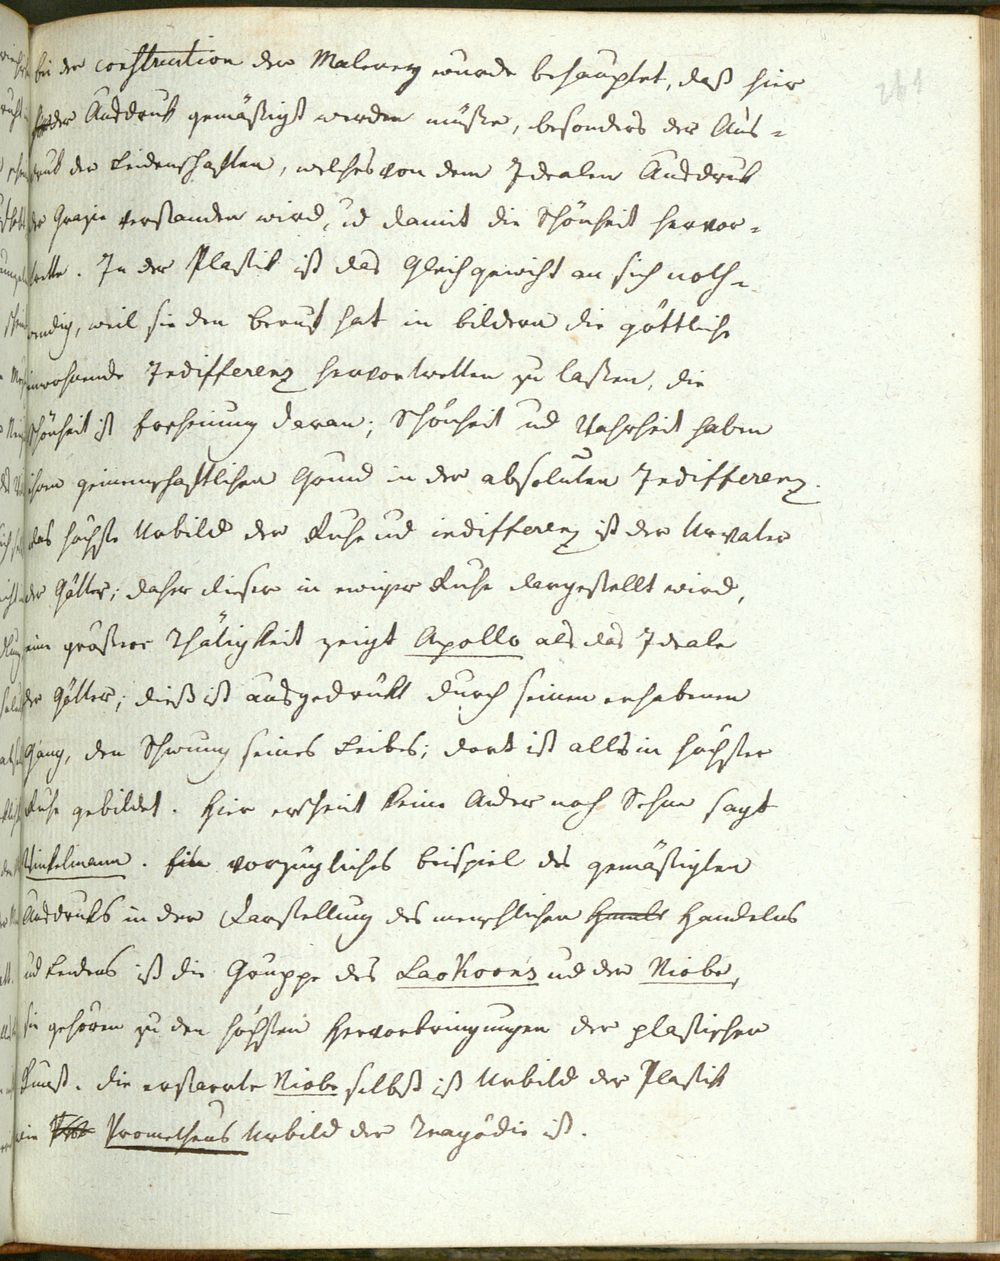 261
bei der construction der Malerey wurde behauptet, daß hier
der Ausdruk gemäßigt werden müße, besonders der Aus-
druk der Leidenschaften, welches von dem Idealen Ausdruk
der Grazie verstanden wird, ud damit die Schönheit hervor-
trette. In der Plastik ist das Gleichgewicht an sich noth-
wendig, weil sie den beruf hat in bildern die göttliche
inwohnende Indifferenz hervortretten zu laßen, die
Schönheit ist Erscheinung daran; Schönheit ud Wahrheit haben
ihren gemeinschaftlichen Grund in der absoluten Indifferenz.
das höchste Urbild der Ruhe ud indifferenz ist der Urvater
der Götter; daher dieser in ewiger Ruhe dargestellt wird,
eine größere Thätigkeit zeigt Apollo als das Ideale
der Götter; dieß ist ausgedrükt durch seinen erhabenen
Gang, den Schwung seines Leibes; dort ist alls in höchster
Ruhe gebildet. Hier erscheint keine Ader noch Sehne sagt
Winkelmann. Ein vorzügliches beispiel des gemäßigten
Ausdruks in der Darstellung des menschlichen Handelns
ud Leidens ist die Gruppe des Laokoons ud der Niobe,
sie gehören zu den höchsten Hervorbringungen der plastischen
Kunst. die erstarrte Niobe selbst ist Urbild der Plastik
wie Prometheus Urbild der Tragödie ist.